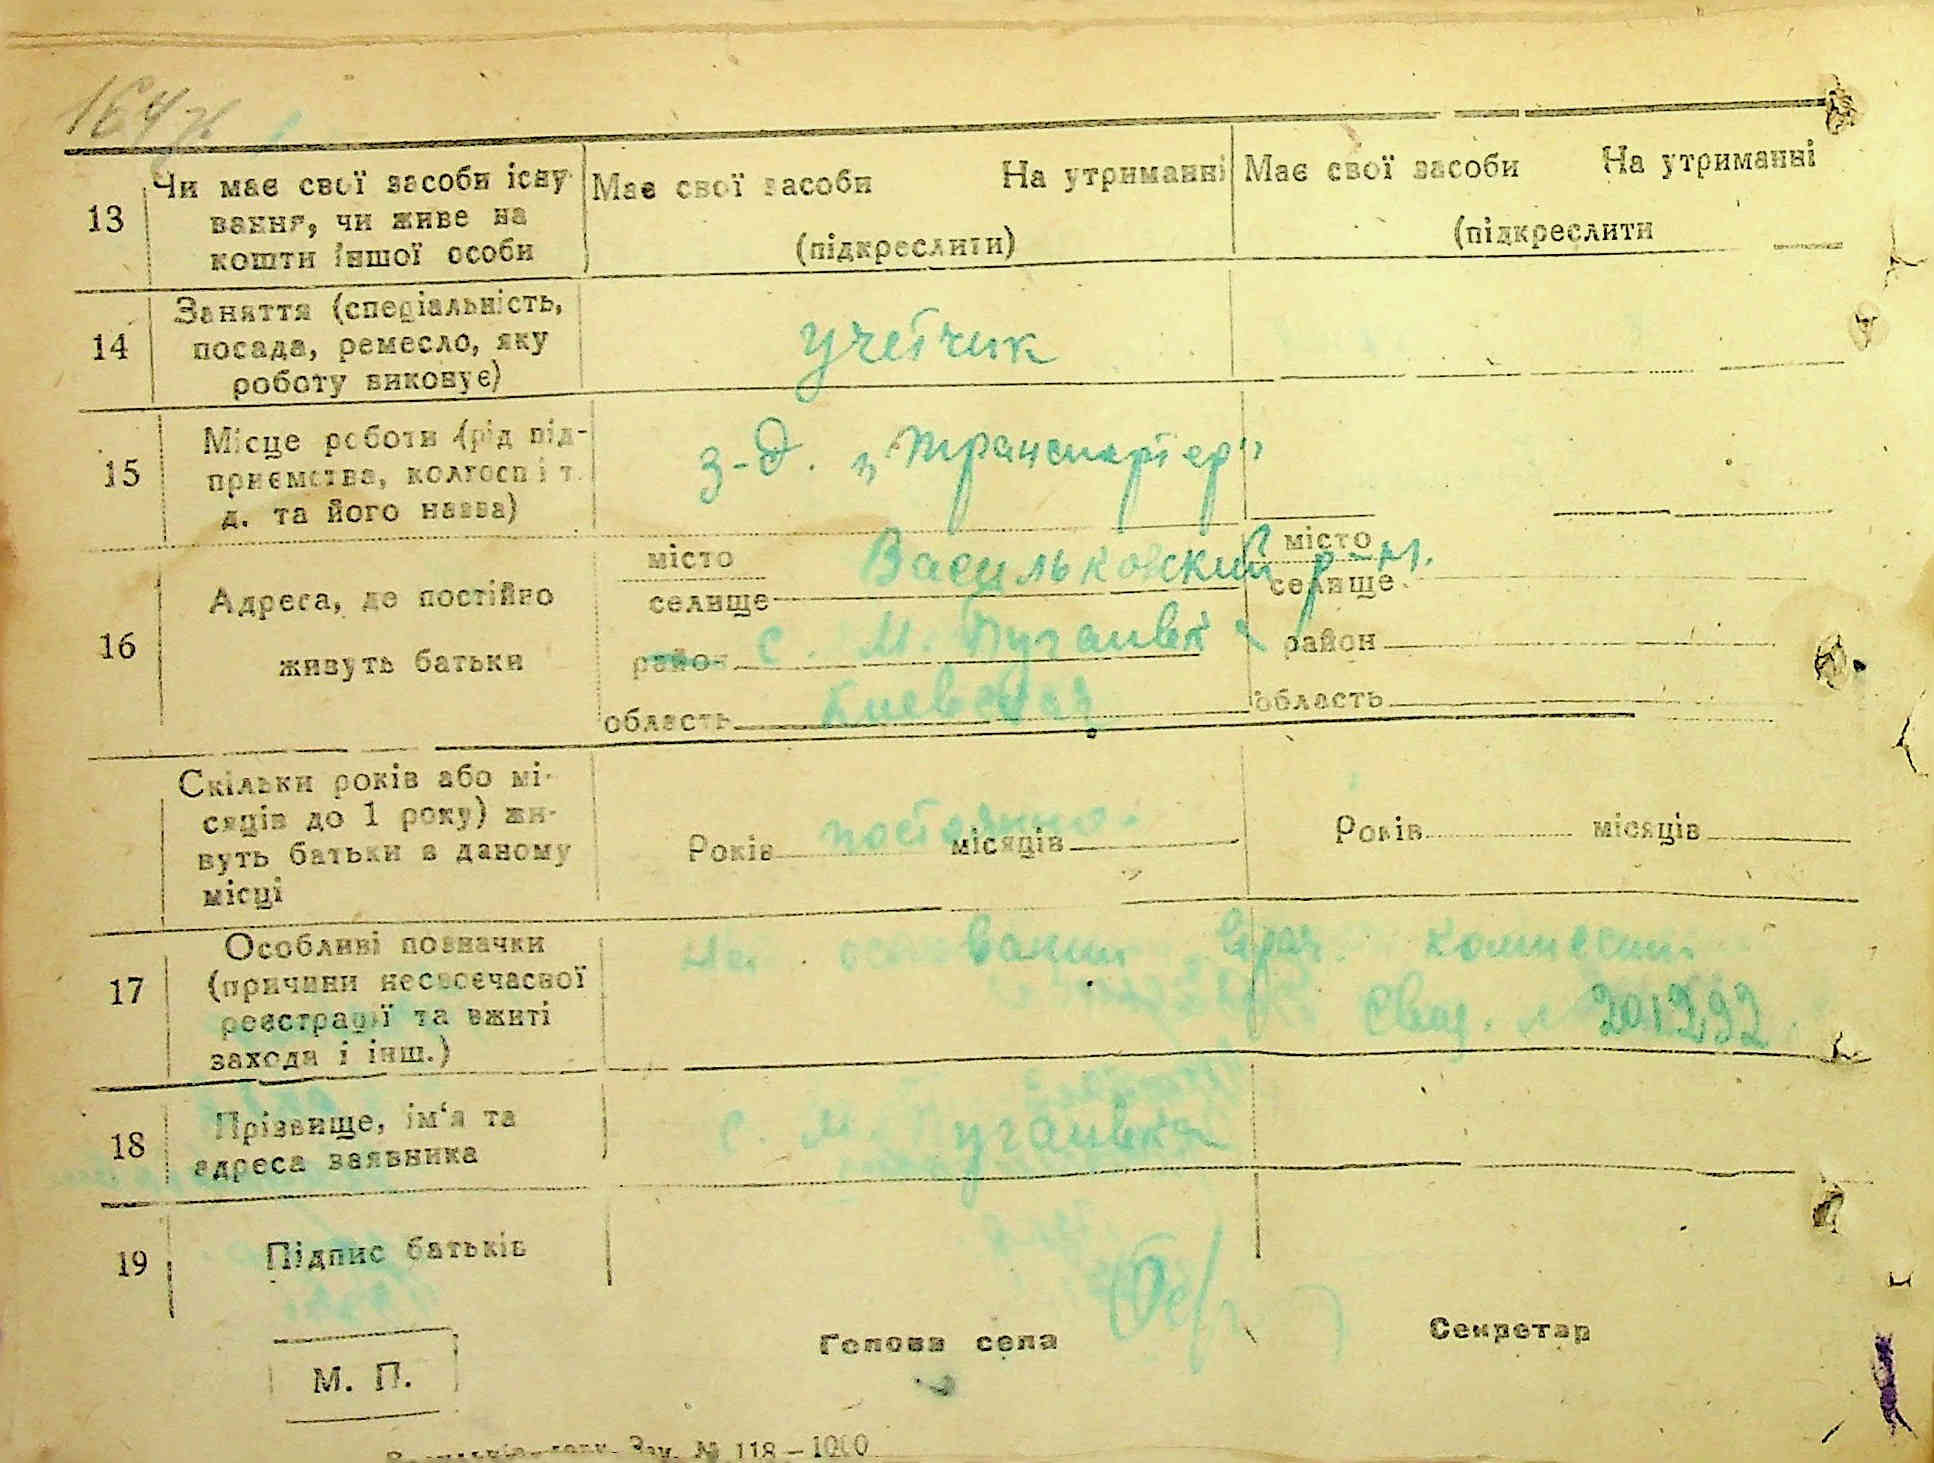 164
13 Чи має свої засоби існу-
вання, чи живе на
кошти іншої особи
Має свої засоби На утриманні
(підкреслити)
Має свої засоби На утриманні
(підкреслити
14 Заняття (спеціальність,
посада, ремесло, яку
роботу виконує)
учетчик
15 Місце роботи (рід під-
приємства, колгосп і т.
д. та його назва)
з-д. „Транспортер"
16 Адреса, де постійно
живуть батьки
місто Васильковский р-н.
селище
район с. М. Бугаивка
область Киевская
місто
селище
район
область
Скільки років або мі-
сяців до 1 року) жи-
вуть батьки в даному
місці
Років постоянно місяців
Років місяців
17 Особливі позначки
(причини несвоєчасної
реєстрації та вжиті
заходи і інш.)
На основании врач. комиссии
Свид. № 201292
18 Прізвище, ім'я та
адреса заявника
с. М. Бугаивка
19 Підпис батьків
М. П.
Голова села
Секретар
Зак. № 118 – 1000